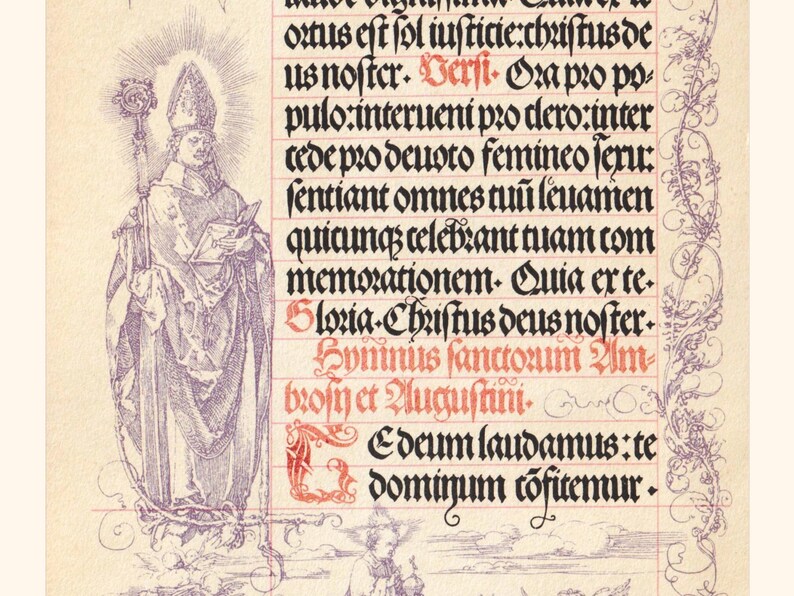 ortus est sol iusticie:christus de
us noster. Versi. Ora pro po⸗
pulo:interueni pro clero:inter
cede pro deuoto femineo sexu:
sentiant omnes tuū leuamen
quicunqꝫ celebrant tuam com
memorationem. Quia ex te.
Gloria. Christus deus noster.
Hymnus sanctorum Am⸗
brosij et Augustini.
Te deum laudamus: te
dominum cōfitemur.